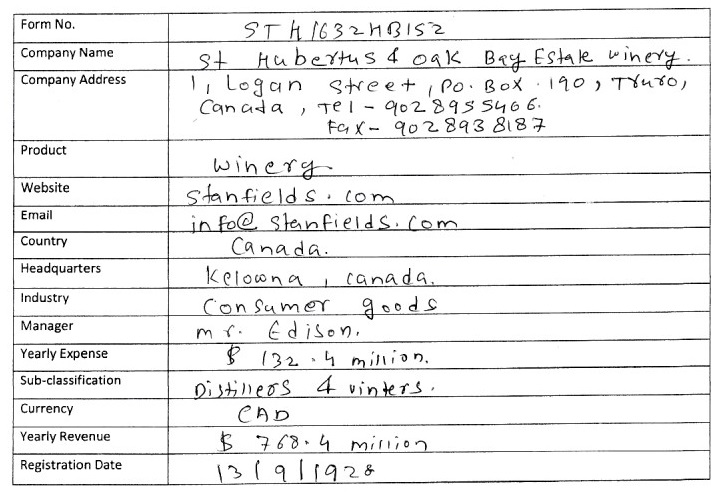 Form No. STH1632HB152
Company Name St Hubertus & oak Bay Estate winery.
Company Address 1, Logan Street, PO. Box. 190, Truro,
Canada, Tel - 902 895 5406.
Fax - 902 893 8187
Product winery
Website stanfields.com
Email info@stanfields.com
Country Canada.
Headquarters Kelowna, canada.
Industry Consumer goods
Manager mr. Edison.
Yearly Expense $ 132.4 million.
Sub-classification Distillers & vinters.
Currency CAD
Yearly Revenue $ 768.4 million
Registration Date 13/9/1928